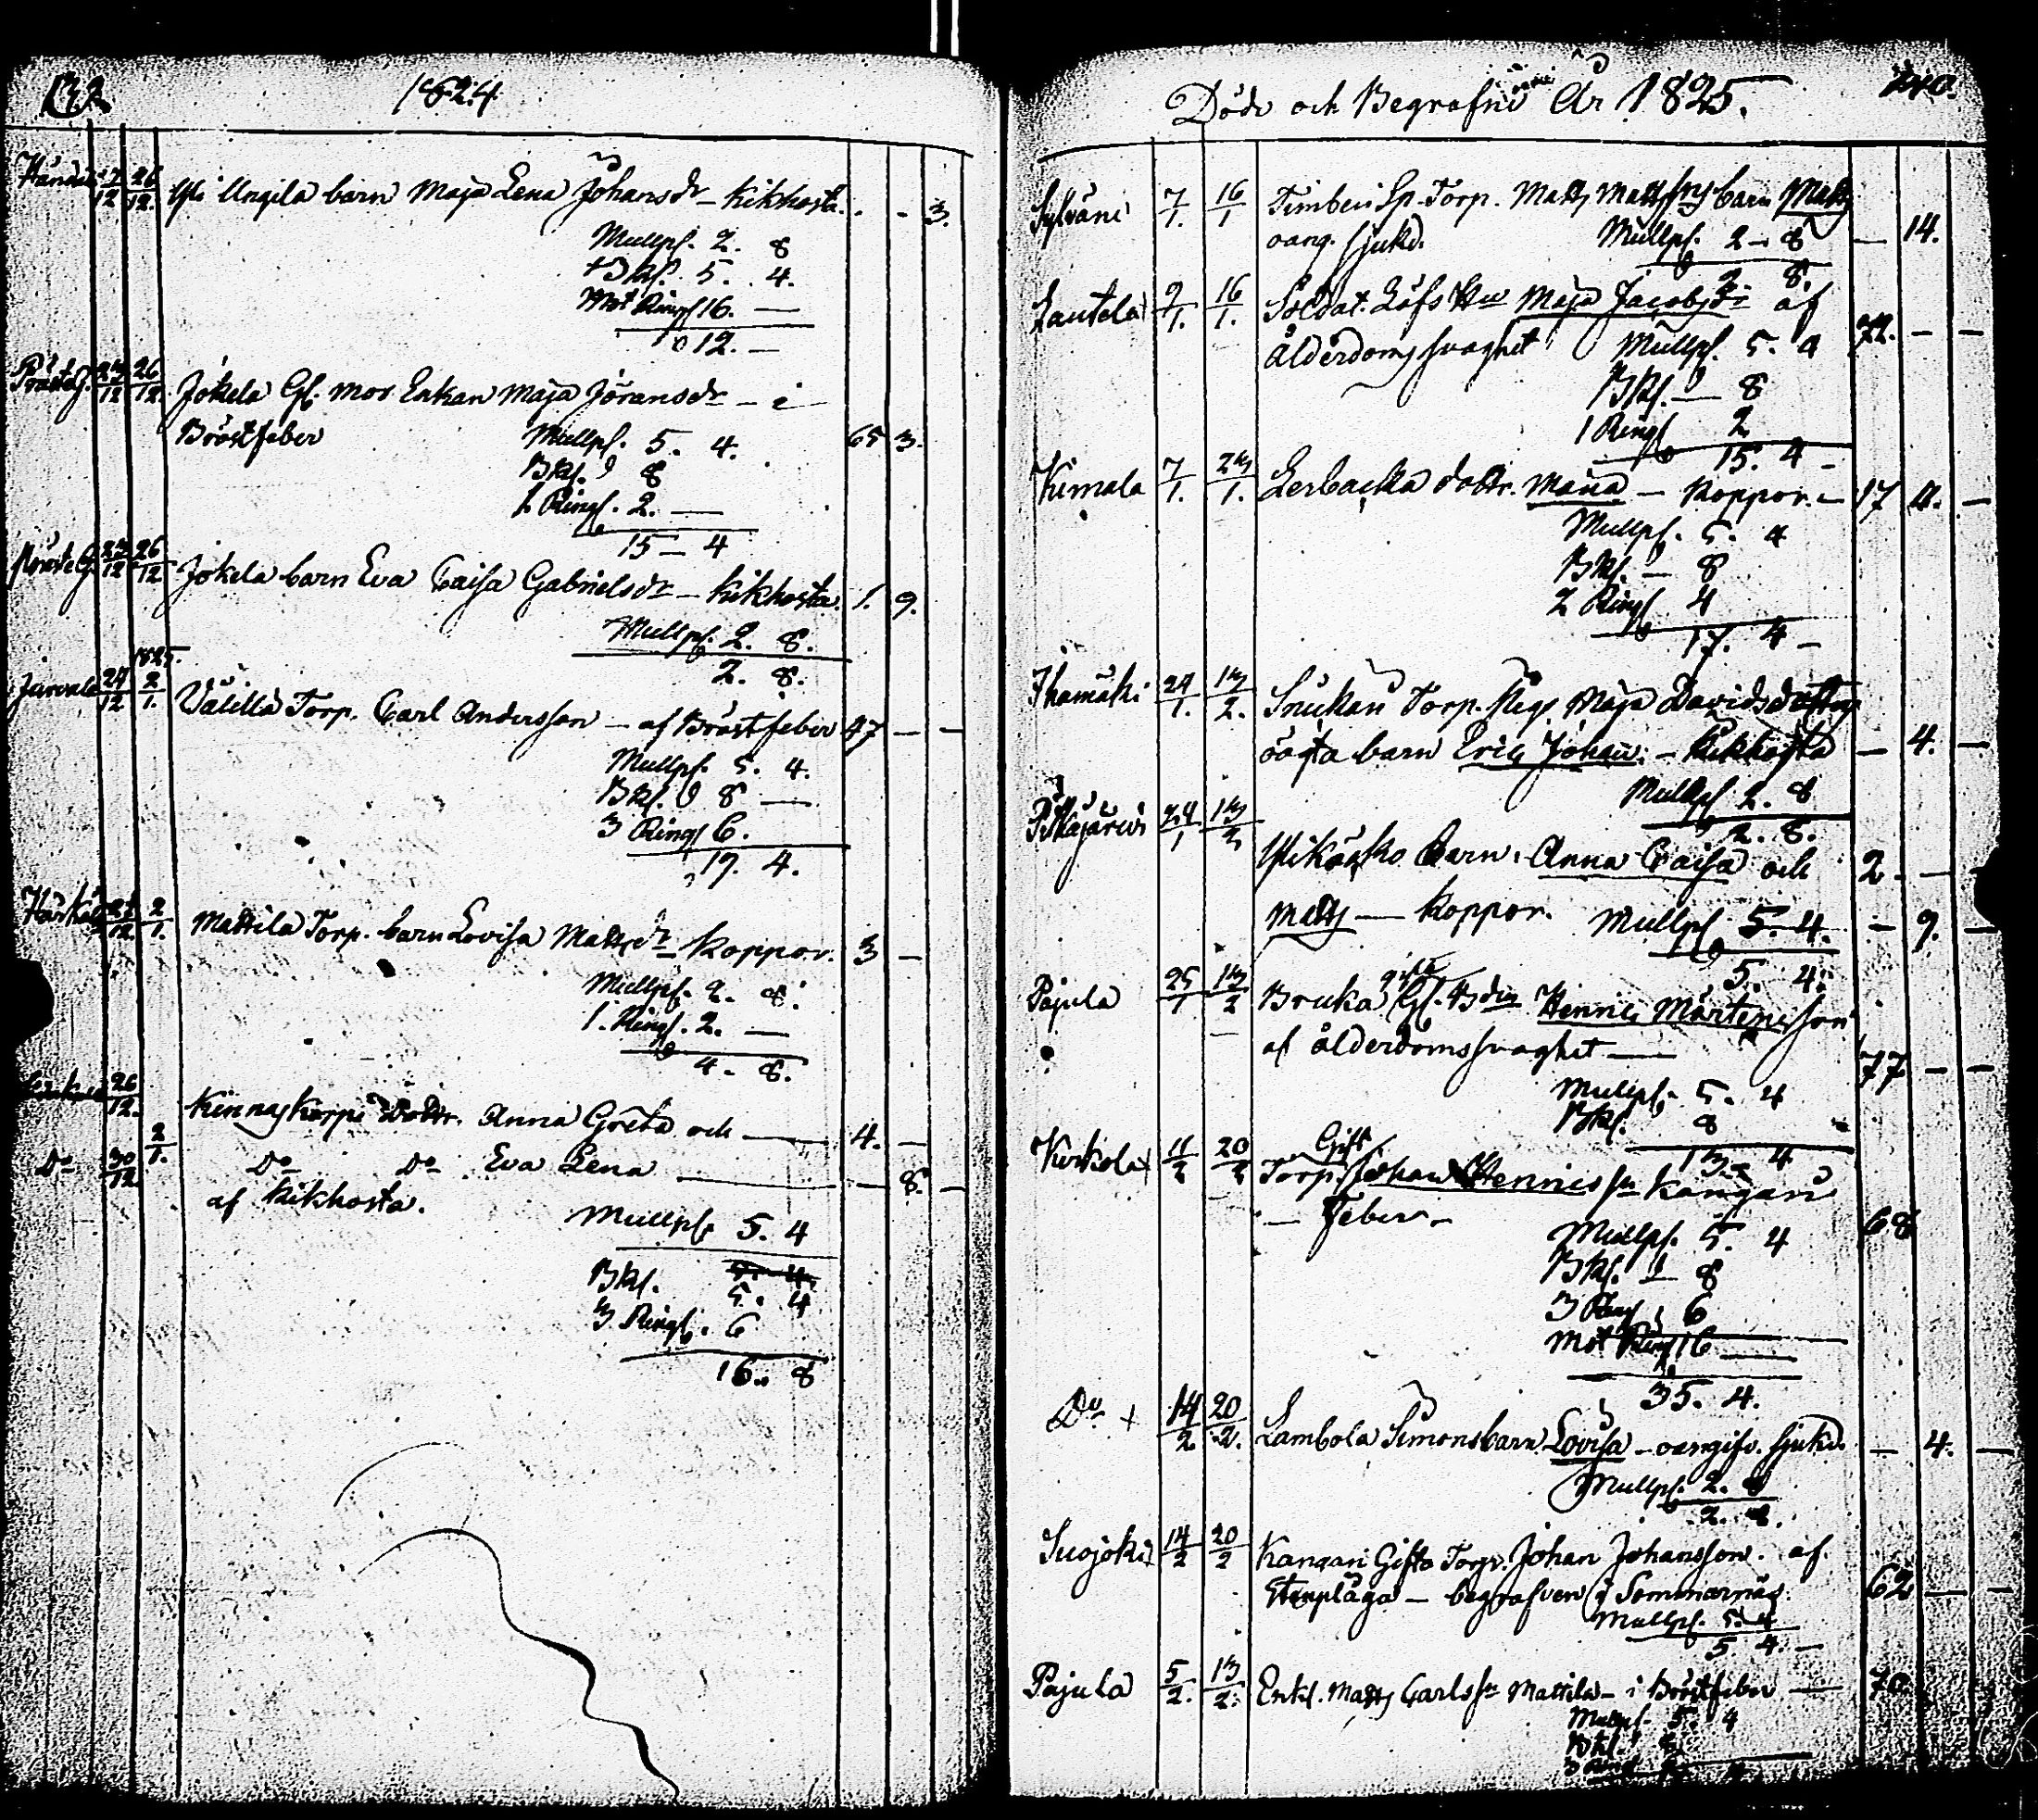 1824
17/12 26/12 Yli Ungila barn Maja Lena Johansdr – Kikhosta. - 3.
Mullpf. 2. 8
Bkl. 5. 4.
Mot Ringf 16. —
12. —
23/12 26/12 Jokela Gl. mor Enkan Maja Jöransdr – i
Bröstfeber 65 3.
Mullpf. 5. 4.
Bkl. 8
1 Ringf. 2. —
15 — 4
23/12 26/12 Jokela barn Eva Caisa Gabrielsdr – Kikhosta. 1. 9.
Mullpf. 2. 8.
2. 8.
1825.
24/12 2/1. Välilla Torp. Carl Andersson – af Bröstfeber 47 — —
Mullpf. 5. 4.
Bkl. 8 —
3 Ringf 6.
19. 4.
2/1. Mattila Torp. barn Lovisa Mattsdr Koppor. 3 —
Mullpf. 2. 8.
1. Ringf. 2. —
4. 8.
26/12. Dottr. Anna Greta och — 4. —
2/1.
Do 30/12 Do Do Eva Lena — — 8. —
af Kikhosta.
Mullpf. 5. 4
Bkl. 5. 4
3 Ringf. 6
16. 8
Döde och Begrafne År 1825. 240.
7/1. 16/1 Sp. Torp. Matts Mattssns barn Matts
oang. sjukd. Mullpf. 2 – 8 — 14.
2 8.
9/1. 16/1. Soldat. Löfs Hu Maja Jacobsdr af
ålderdomssvaghet Mullpf. 5. 4 72. — —
Bkl. — 8
1 Ringf 2
15. 4 –
Kimala 7/1. 23/1. Lerbacka dottr. Maria – Koppor. – 17 4. —
Mullpf. 5. 4
Bkl. — 8
2 Ringf 4
17. 4 –
Ihamäki 24/1. 13/2. Torp. Maja Davidsdotters
oägta barn Eric Johan. – Kikhosta — 4. —
Mullpf 2. 8
2. 8.
Pitkäjärwi 24/1 13/2 Barn. Anna Caisa och 2 — —
Matts — Koppor. Mullpf 5. 4. — 9. —
5. 4.
Pajula 25/1 13/2 Bruka gifte Gl. Bdn Hennic Mårtensson
af ålderdomssvaghet — 77 — —
Mullpf. 5. 4
Bkl. 8
13. 4
Kirkola 11/2 20/2 Gift Torp. Johan Hennicssn Kangari
— Feber – 68
Mullpf. 5. 4
Bkl. — 8
3 Ringf 6
Mot Ringf 16 —
35. 4.
Do + 14/2 20/2. Lambola Simons barn Lovisa – oangifv. sjukd. — 4. —
Mullpf. 2. 8
2. 8.
Suojoki 14/2 20/2 Kangari Gifte Torp. Johan Johansson. af
Stenplåga – begrafven i Sommarnäs. 62 — —
Mullpf. 5. 4
5 4. —
Pajula 5/2. 13/2. Enkl. Matts Carlssn Mattila – i Bröstfeber — 70
Mullpf. 5. 4
Bkl. 8